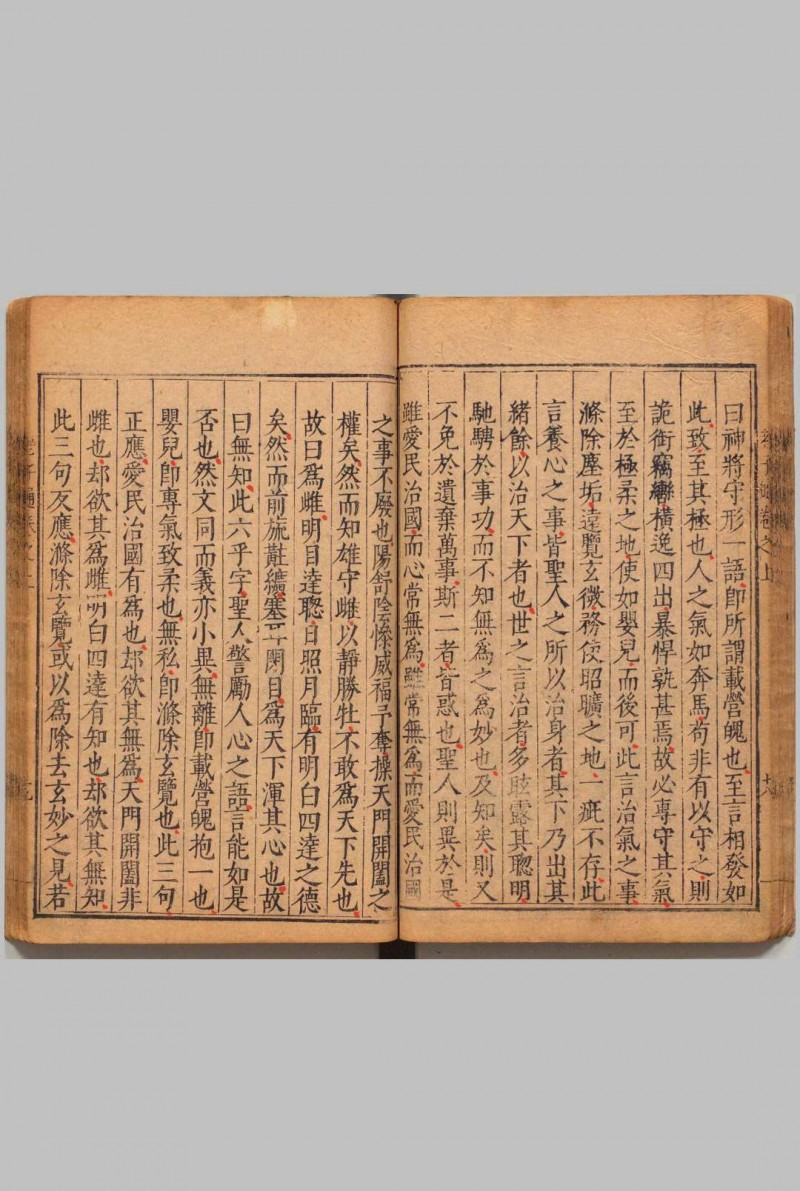 曰神將守形一語即所謂載營魄也至言相發如
此致至其極也人之氣如奔馬苟非有以守之則
詭銜竊轡橫逸四出暴悍孰甚焉故必專守其氣
至於極柔之地使如嬰兒而後可此言治氣之事
滌除塵垢達覽玄微務使昭曠之地一疵不存此
言養心之事皆聖人之所以治身者其下乃出其
緒餘以治天下者也世之言治者多眩露其聰明
馳騁於事功而不知無為之為妙也及知矣則又
不免於遺棄萬事斯二者皆惑也聖人則異於是
雖愛民治國而心常無為雖常無為而愛民治國
之事不廢也陽舒陰慘威福予奪操天門開闔之
權矣然而知雄守雌以靜勝牡不敢為天下先也
故曰為雌明目達聰日照月臨有明白四達之德
矣然而前旒黈纊塞耳閉目為天下渾其心也故
曰無知此六乎字聖人警勵人心之語言能如是
否也然文同而義亦小異無離即載營魄抱一也
嬰兒即專氣致柔也無私即滌除玄覽也此三句
正應愛民治國有為也却欲其無為天門開闔非
雌也却欲其為雌明白四達有知也却欲其無知
此三句反應滌除玄覽或以為除去玄妙之見若